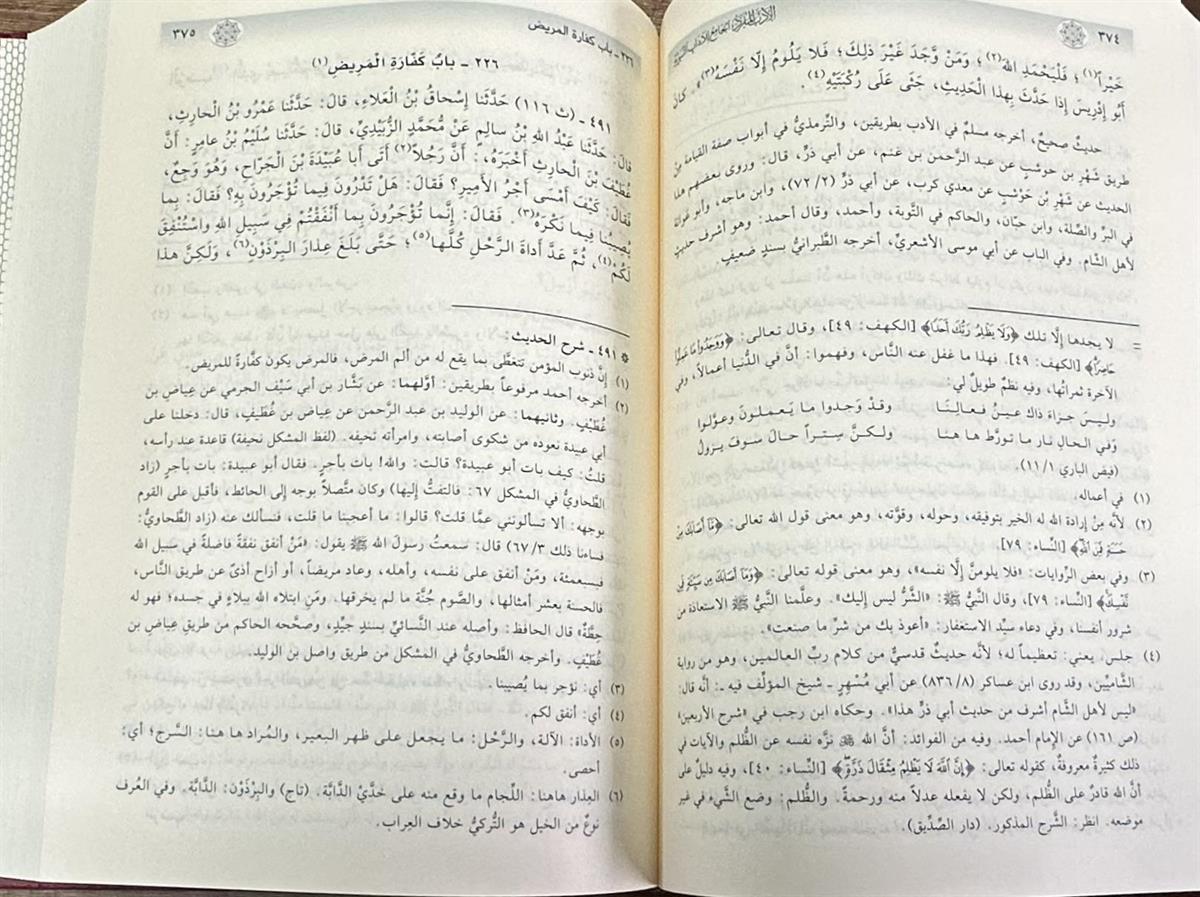 ٣٧٤
الأدب المفرد الجامع للآداب النبوية
خَيْراً(١)؛ فَلْيَحْمَدِ اللهَ(٢)؛ وَمَنْ وَجَدَ غَيْرَ ذلِكَ؛ فَلا يَلُومُ إِلّا نَفْسَهُ(٣)». كانَ
أَبُو إِدْرِيسَ إِذَا حَدَّثَ بِهذَا الْحَدِيثِ، جَثَى عَلَى رُكْبَتَيْهِ(٤).
حديثٌ صحيحٌ، أخرجه مسلم في الأدب بطريقين، والتِّرمذيُّ في أبواب صفة القيامة منْ
طريق شَهْرِ بن حَوْشَبٍ عن عبد الرَّحمن بن غنم، عن أبي ذرٍّ، قال: وروى بعضهم هذا
الحديث عن شَهْرِ بْنِ حَوْشَبٍ عن معدي كرب، عن أبي ذَرٍّ (٧٢/٢)، وابن ماجه، وأبو عَوانة
في البرِّ والصِّلة، وابن حبّان، والحاكم في التَّوبة، وأحمد، وقال أحمد: وهو أشرف حديثٍ
لأهل الشَّام. وفي الباب عن أبي موسى الأشعريِّ، أخرجه الطَّبرانيُّ بسندٍ ضعيفٍ.
= لا يجدها إلّا تلك ﴿وَلَا يَظْلِمُ رَبُّكَ أَحَدًا﴾ [الكهف: ٤٩]، وقال تعالى: ﴿وَوَجَدُوا مَا عَمِلُوا
حَاضِرًا﴾ [الكهف: ٤٩]. فهذا ما غفل عنه النَّاس، وفهموا: أنَّ في الدُّنيا أعمالاً، وفي
الآخرة ثمراتُها، وفيه نظمٌ طويلٌ لي:
وليسَ جـزاء ذاك عيـنُ فعـالِنـا وقـدْ وجـدوا ما يَعـملـونَ وعـوَّلوا
وَفي الحالِ نار ما تورَّط ها هنا ولـكـنَّ سِتـراً حـالَ سَـوفَ يـزولُ
(فيض الباري ١١/١)
(١) في أعماله.
(٢) لأنَّه مِنْ إرادة الله له الخير بتوفيقه، وحوله، وقوَّته، وهو معنى قول الله تعالى: ﴿مَّا أَصَابَكَ مِنْ
حَسَنَةٍ فَمِنَ اللَّهِ﴾ [النِّساء: ٧٩].
(٣) وفي بعض الرِّوايات: «فلا يلومنَّ إلَّا نفسه»، وهو معنى قوله تعالى: ﴿وَمَا أَصَابَكَ مِن سَيِّئَةٍ فَمِن
نَّفْسِكَ﴾ [النِّساء: ٧٩]، وقال النَّبيُّ ﷺ: «الشرُّ ليس إليك». وعلَّمنا النَّبيُّ ﷺ الاستعاذة من
شرور أنفسنا، وفي دعاء سيِّد الاستغفار: «أعوذ بك من شرِّ ما صنعت».
(٤) جلس، يعني: تعظيماً له؛ لأنَّه حديثٌ قدسيٌّ من كلام ربِّ العالمين، وهو من رواية
الشَّاميِّين، وقد روى ابن عساكر (٨٣٦/٨) عن أبي مُسْهِرٍ ـ شيخ المؤلِّف فيه ـ: أنَّه قال:
«ليس لأهل الشَّام أشرف من حديث أبي ذرٍّ هذا». وحكاه ابن رجب في «شرح الأربعين»
(ص ١٦١) عن الإمام أحمد. وفيه من الفوائد: أنَّ الله ﷻ نزَّه نفسه عن الظُّلم والآيات في
ذلك كثيرةٌ معروفةٌ، كقوله تعالى: ﴿إِنَّ اللَّهَ لَا يَظْلِمُ مِثْقَالَ ذَرَّةٍ﴾ [النِّساء: ٤٠]، وفيه دليلٌ على
أنَّ الله قادرٌ على الظُّلم، ولكن لا يفعله عدلاً منه ورحمةً. والظُّلم: وضع الشَّيء في غير
موضعه. انظر: الشَّرح المذكور. (دار الصِّدِّيق).
٢٢٦ ـ باب كفارة المريض
٣٧٥
٢٢٦ ـ بابُ كَفّارَةِ الْمَرِيضِ(١)
٤٩١ ـ (ث ١١٦) حَدَّثَنا إِسْحاقُ بْنُ الْعَلاءِ، قالَ: حَدَّثَنا عَمْرُو بْنُ الْحارِثِ،
قالَ: حَدَّثَنا عَبْدُ اللهِ بْنُ سالِمٍ عَنْ مُحَمَّدٍ الزُّبَيْدِيِّ، قالَ: حَدَّثَنا سُلَيْمُ بْنُ عامِرٍ: أَنَّ
غُطَيْفَ بْنَ الْحارِثِ أَخْبَرَهُ،: أَنَّ رَجُلاً(٢) أَتَى أَبا عُبَيْدَةَ بْنَ الْجَرّاحِ، وَهُوَ وَجِعٌ،
فَقالَ: كَيْفَ أَمْسَى أَجْرُ الْأَمِيرِ؟ فَقالَ: هَلْ تَدْرُونَ فِيما تُؤْجَرُونَ بِهِ؟ فَقالَ: بِما
يُصِيبُنا فِيما نَكْرَهُ(٣). فَقالَ: إِنَّما تُؤْجَرُونَ بِما أَنْفَقْتُمْ فِي سَبِيلِ اللهِ وَاسْتُنْفِقَ
لَكُمْ(٤)، ثُمَّ عَدَّ أَداةَ الرَّحْلِ كُلَّها(٥)؛ حَتَّى بَلَغَ عِذارَ الْبِرْذَوْنِ(٦)، وَلَكِنَّ هذا
* ٤٩١ ـ شرح الحديث:
(١) إنَّ ذنوب المؤمن تتغطَّى بما يقع له من ألم المرض، فالمرض يكون كفَّارةً للمريض.
(٢) أخرجه أحمد مرفوعاً بطريقين: أوَّلهما: عن بَشَّار بن أبي سَيْف الجرمي عن عِياض بن
غُطَيْفٍ. وثانيهما: عن الوليد بن عبد الرَّحمن عن عِياض بن غُطَيفٍ، قال: دخلنا على
أبي عبيدة نعوده من شكوى أصابته، وامرأته تحيفه. (لفظ المشكل نحيفة) قاعدة عند رأسه،
قلتُ: كيف بات أبو عبيدة؟ قالت: والله! بات بأجرٍ. فقال أبو عبيدة: بات بأجرٍ (زاد
الطَّحاويُّ في المشكل ٦٧: فالتفتُّ إليها) وكان متَّصلاً بوجه إلى الحائط، فأقبل على القوم
بوجهه: ألا تسألونني عمَّا قلت؟ قالوا: ما أعجبنا ما قلت، فنسألك عنه (زاد الطَّحاويُّ:
فساءنا ذلك ٦٧/٣) قال: سمعتُ رسولَ الله ﷺ يقول: «مَنْ أنفق نفقةً فاضلةً في سبيل الله
فبسبعمئة، ومَنْ أنفق على نفسه، وأهله، وعاد مريضاً، أو أزاح أذىً عن طريق النَّاس،
فالحسنة بعشر أمثالها، والصَّوم جُنَّة ما لم يخرقها. ومَنِ ابتلاه الله ببلاءٍ في جسده؛ فهو له
حِطَّةٌ» قال الحافظ: وأصله عند النَّسائيِّ بسندٍ جيِّدٍ، وصحَّحه الحاكم من طريقِ عِياض بن
غُطَيْفٍ. وأخرجه الطَّحاويُّ في المشكل من طريق واصل بن الوليد.
(٣) أي: نؤجر بما يُصيبنا.
(٤) أي: أنفق لكم.
(٥) الأداة: الآلة، والرَّحْل: ما يجعل على ظهر البعير، والمُراد ها هنا: السَّرج؛ أي:
أحصى.
(٦) العِذار هاهنا: اللِّجام ما وقع منه على خدَّيْ الدَّابَّة. (تاج) والبِرْذَوْن: الدَّابَّة. وفي العُرف
نوعٌ من الخيل هو التُّركيُّ خلاف العِراب.